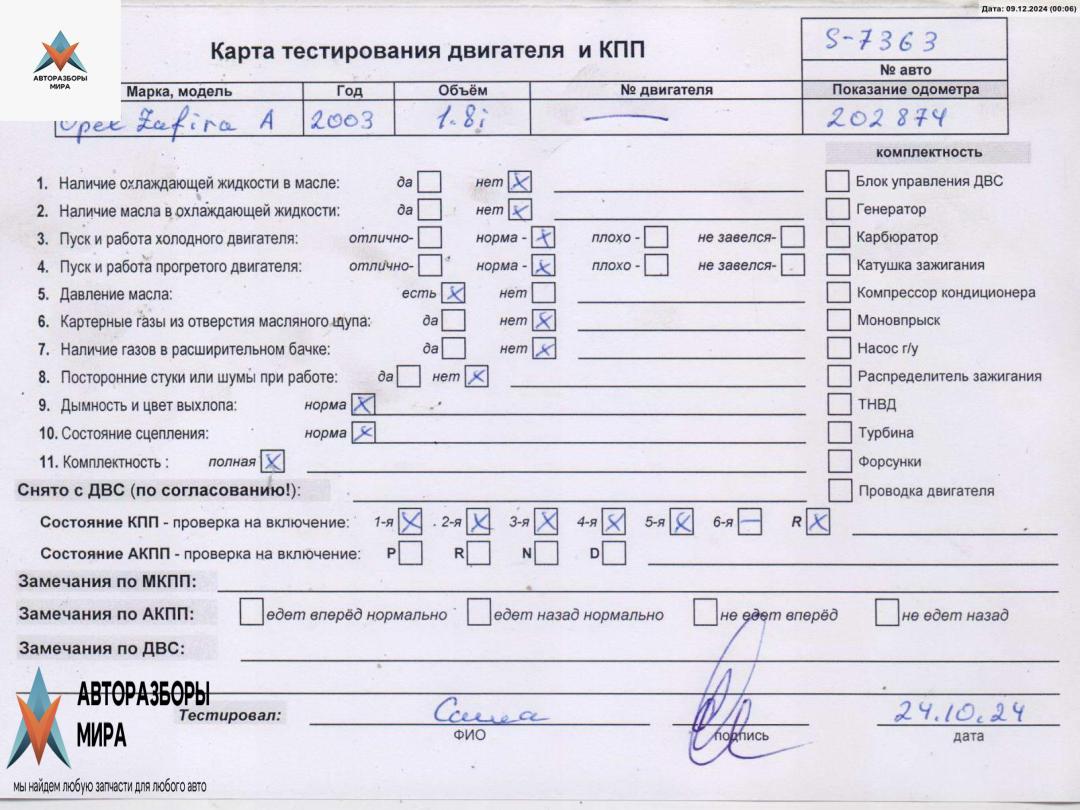 Дата: 09.12.2024 (00:06)
АВТОРАЗБОРЫ
МИРА
Карта тестирования двигателя и КПП
S-7363
№ авто
Марка, модель Год Объём № двигателя Показание одометра
Opel Zafira A 2003 1.8i — 202 874
комплектность
1. Наличие охлаждающей жидкости в масле: да нет X Блок управления ДВС
2. Наличие масла в охлаждающей жидкости: да нет X Генератор
3. Пуск и работа холодного двигателя: отлично- норма - X плохо - не завелся- Карбюратор
4. Пуск и работа прогретого двигателя: отлично- норма - X плохо - не завелся- Катушка зажигания
5. Давление масла: есть X нет Компрессор кондиционера
6. Картерные газы из отверстия масляного щупа: да нет X Моновпрыск
7. Наличие газов в расширительном бачке: да нет X Насос г/у
8. Посторонние стуки или шумы при работе: да нет X Распределитель зажигания
9. Дымность и цвет выхлопа: норма X ТНВД
10. Состояние сцепления: норма X Турбина
11. Комплектность : полная X Форсунки
Снято с ДВС (по согласованию!): Проводка двигателя
Состояние КПП - проверка на включение: 1-я X . 2-я X 3-я X 4-я X 5-я X 6-я — R X
Состояние АКПП - проверка на включение: P R N D
Замечания по МКПП:
Замечания по АКПП: едет вперёд нормально едет назад нормально не едет вперёд не едет назад
Замечания по ДВС:
АВТОРАЗБОРЫ
МИРА
Тестировал: Саша 24.10.24
ФИО подпись дата
мы найдем любую запчасти для любого авто